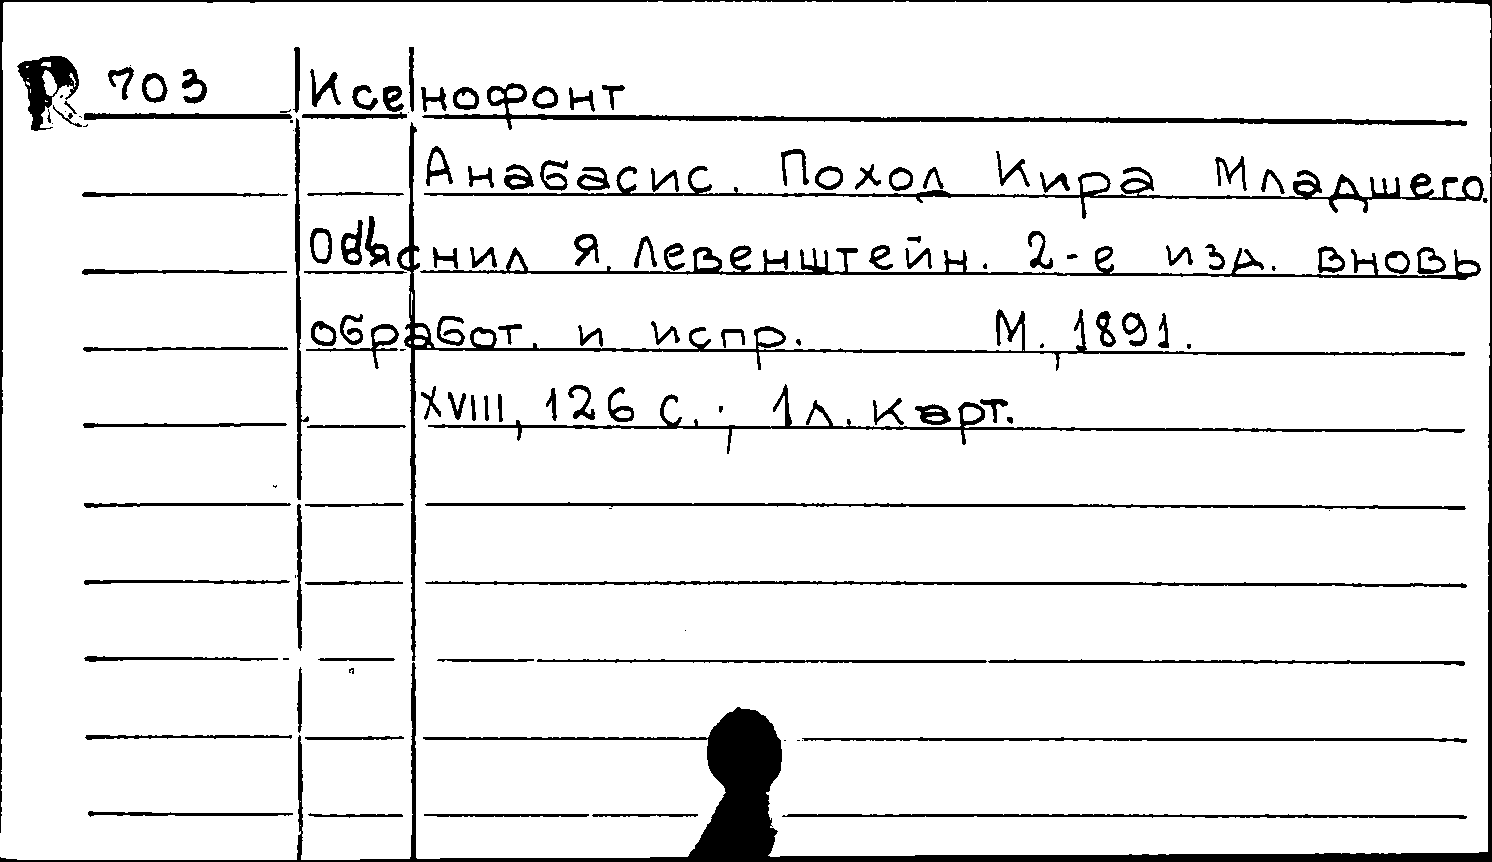 R 703 Ксенофонт
Анабасис. Поход Кира Младшего.
Объяснил Я. Левенштейн. 2-е изд. вновь
обработ. и испр. М., 1891.
XVIII, 126 с.; 1 л. карт.